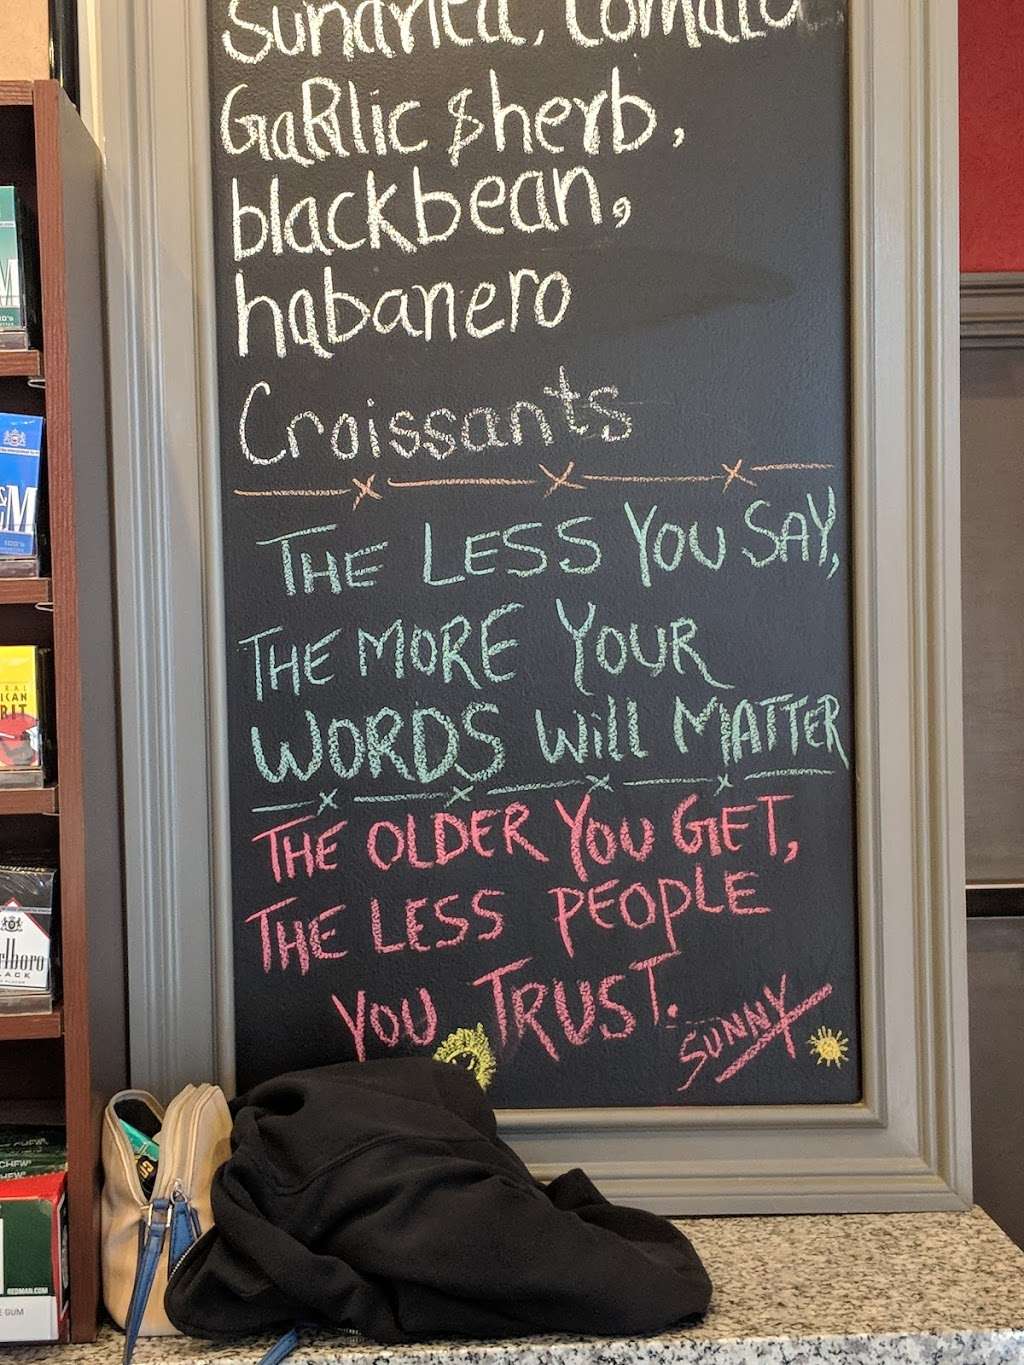 Sundried, tomato
GaRlic & herb,
blackbean,
habanero
Croissants
THE LESS YOU SAY,
THE MORE YOUR
WORDS Will MATTER
THE OLDER YOU GET,
THE LESS PEOPLE
YOU TRUST.
SUNNY
ICAN
rlboro
LACK
CHEW
CHEW
REDMAN.COM
GUM